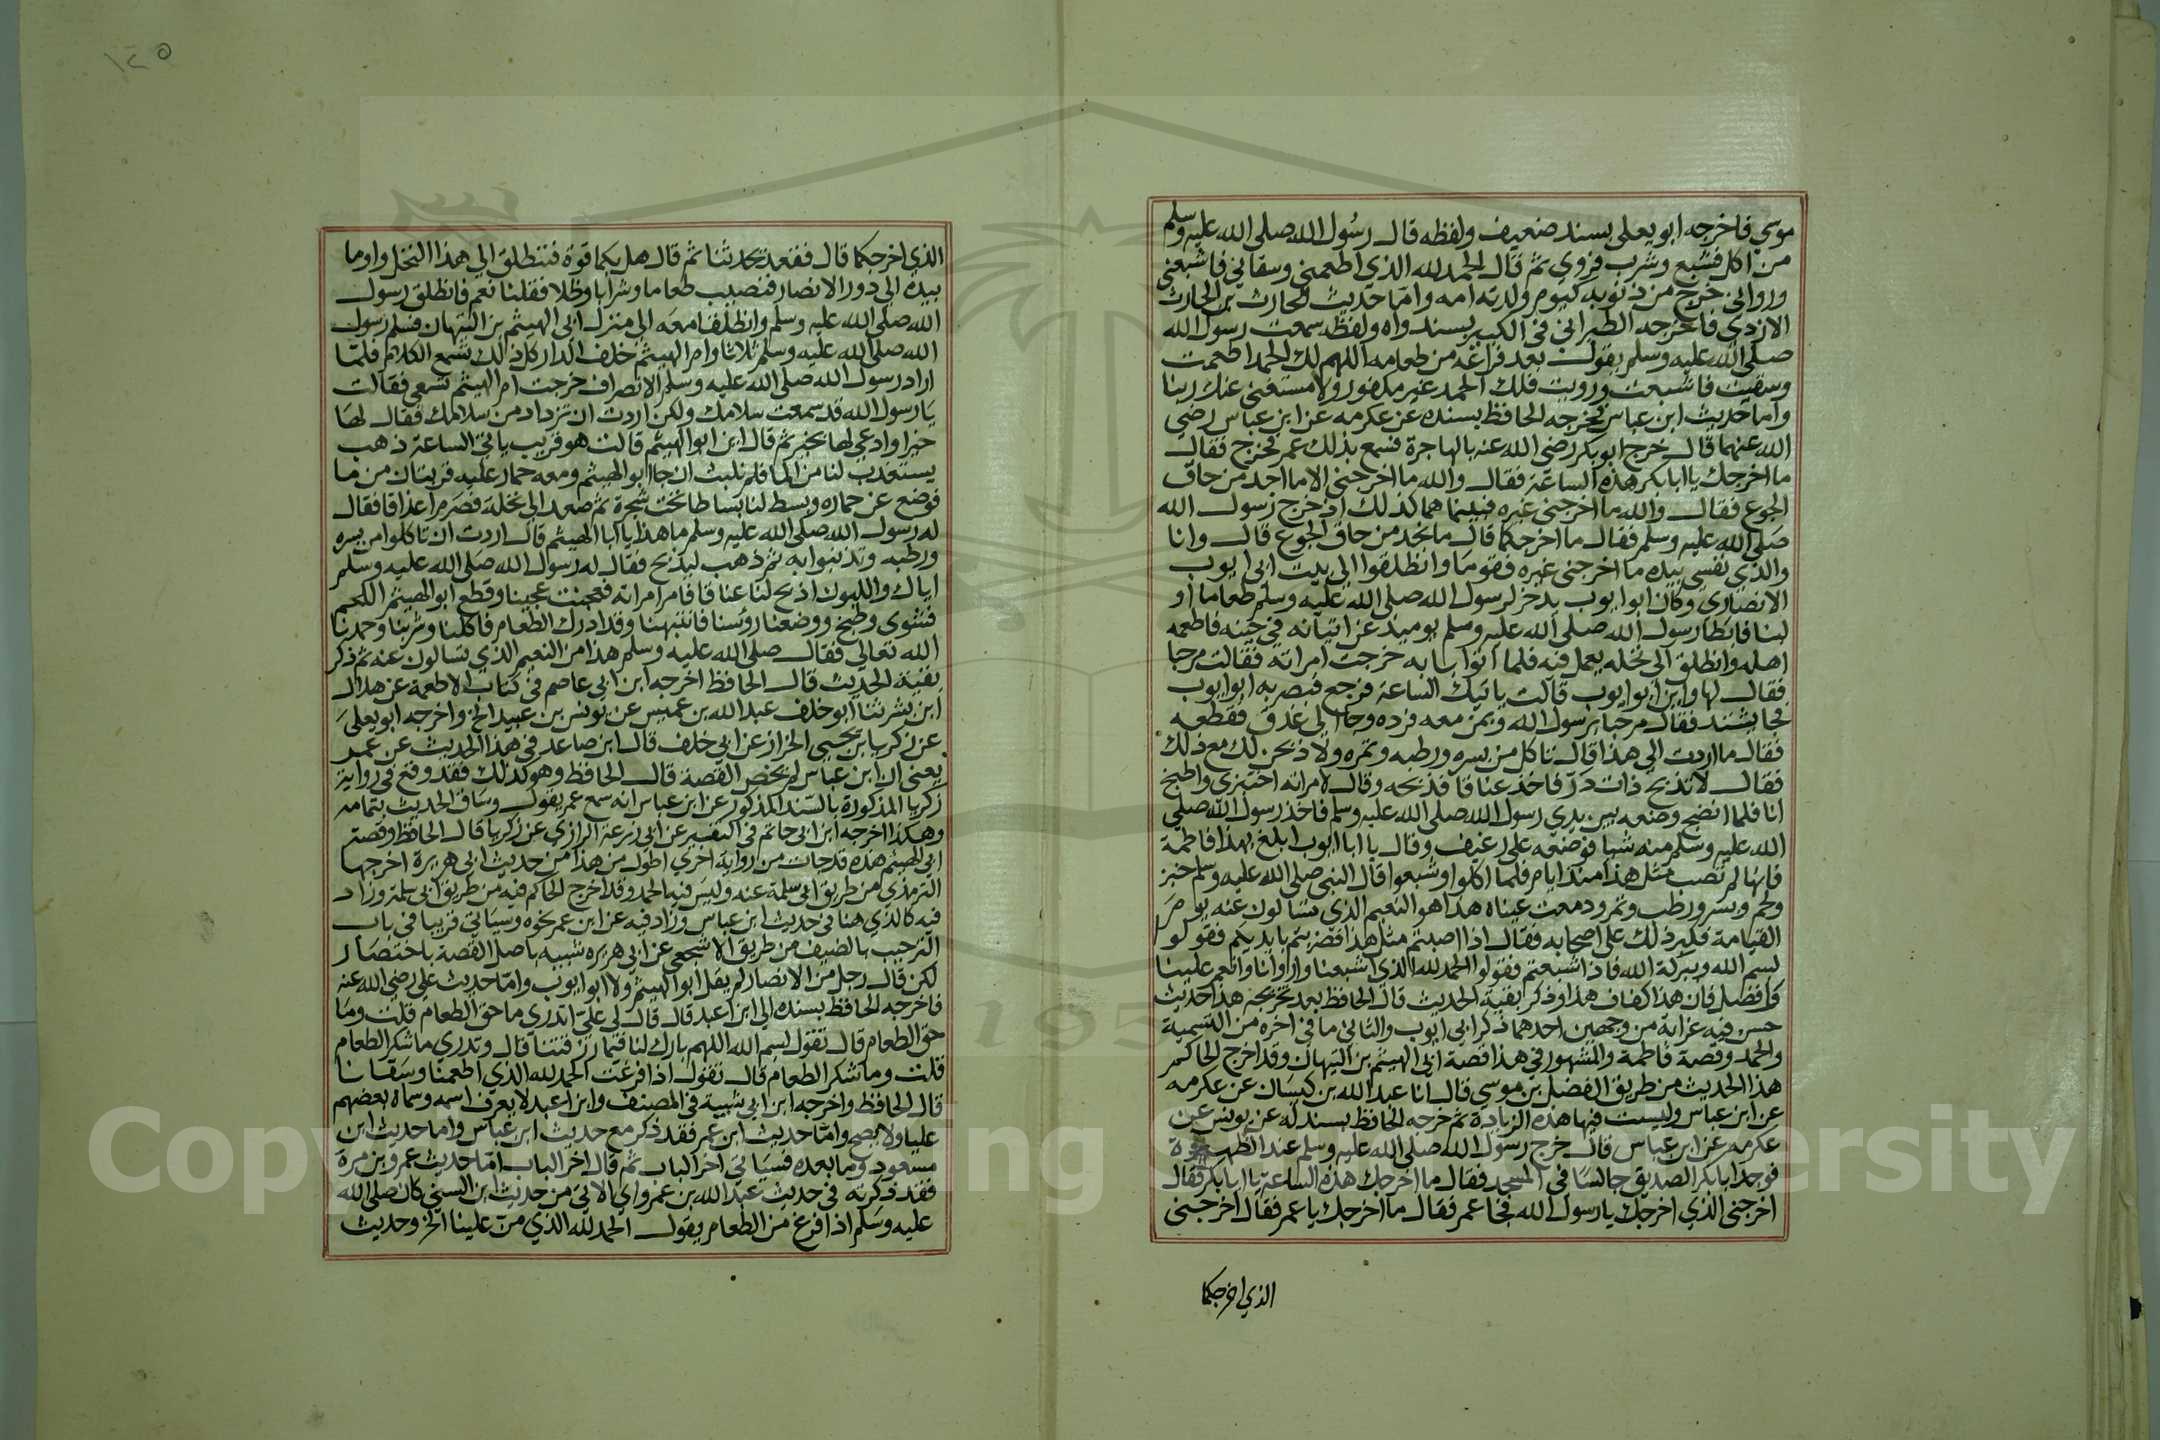 موسي فاخرجه ابو يعلى بسند ضعيف ولفظه قال رسول الله صلى الله عليه وسلم
من اكل فشبع وشرب فروي ثم قال الحمد لله الذي اطعمني وسقاني فاشبعني
وروا ني خرج من ذنوبه كيوم ولدته امه واما حديث الحارث بن الحارث
الازدي فاخرجه الطبراني في الكبير بسند واه ولفظه سمعت رسول الله
صلى الله عليه وسلم يقول بعد فراغه من طعامه اللهم لك الحمد اطعمت
وسقيت فاشبعت ورويت فلك الحمد غير مكفور ولا مستغنى عنك ربنا
واما حديث ابن عباس فخرجه الحافظ بسنده عن عكرمه عن ابن عباس رضي
الله عنهما قال خرج ابو بكر رضي الله عنه بالهاجرة فسمع بذلك عمر فخرج فقال
ما اخرجك يا ابا بكر هذه الساعة فقال والله ما اخرجني الا ما اجد من حاق
الجوع فقال والله ما اخرجني غيره فبينما هما كذلك اذ خرج رسول الله
صلى الله عليه وسلم فقال ما اخرجكما قال ما نجد من حاق الجوع قال وانا
والذي نفسي بيده ما اخرجني غيره فقوما وانطلقوا الى بيت ابي ايوب
الانصاري وكان ابو ايوب يدخر لرسول الله صلى الله عليه وسلم طعاما او
لبنا فابطا رسول الله صلى الله عليه وسلم يوميذ عن اتيانه في حينه فاطعمه
اهله وانطلق الى نخله يعمل فيه فلما اتوا بابه خرجت امراته فقالت مرحبا
فقال لها واين ابو ايوب قالت ياتيك الساعة فرجع فبصر به ابو ايوب
فجا يشتد فقال مرحبا برسول الله وبمن معه فرده وجا الى عذق فقطعه
فقال ما اردت الى هذا قال تاكل من بسره ورطبه وتمره ولاذبحن لك مع ذلك
فقال لا تذبح ذات در فاخذ عناقا فذبحه وقال لامراته اختبزي واطبخ
انا فلما انضج وضعه بين يدي رسول الله صلى الله عليه وسلم فاخذ رسول الله صلى
الله عليه وسلم منه شيا فوضعه على رغيف وقال يا ابا ايوب ابلغ بهذا فاطمة
فانها لم تصب مثل هذا منذ ايام فلما اكلوا وشبعوا قال النبي صلى الله عليه وسلم خبز
ولحم وبسر ورطب وتمر ودمعت عيناه هذا هو النعيم الذي تسالون عنه يوم
القيامة فكبر ذلك على اصحابه فقال اذا اصبتم مثل هذا فضربتم بايديكم فقولوا
بسم الله وببركة الله فاذا شبعتم فقولوا الحمد لله الذي اشبعنا واروانا وانعم علينا
وافضل فان هذا كفاف هذا وذكر بقية الحديث قال الحافظ بعد تخريجه هذا حديث
حسن فيه غرابة من وجهين احدهما ذكر ابي ايوب والثاني ما في اخره من التسمية
والحمد وقصة فاطمة والمشهور في هذا قصة ابي الهيثم بن التيهان وقد اخرج الحاكم
هذا الحديث من طريق الفضل بن موسي قال انا عبد الله بن كيسان عن عكرمه
عن ابن عباس وليست فيها هذه الزيادة ثم خرجه الحافظ بسند له عن يونس عن
عكرمه عن ابن عباس قال خرج رسول الله صلى الله عليه وسلم عند الظهيرة
فوجد ابا بكر الصديق جالسا في المسجد فقال ما اخرجك هذه الساعة يا ابا بكر فقال
اخرجني الذي اخرجك يا رسول الله فجا عمر فقال ما اخرجك يا عمر فقال اخرجني
الذي اخرجكما
١٢٥
الذي اخرجكما قال فقعد يحدثنا ثم قال هل بكما قوة فننطلق الى هذا النخل واوما
بيده الى دور الانصار فنصيب طعاما وشرابا وظلا فقلنا نعم فانطلق رسول
الله صلى الله عليه وسلم وانطلقنا معه الى منزل ابي الهيثم بن التيهان فسلم رسول
الله صلى الله عليه وسلم ثلاثا وام الهيثم خلف الدار كل ذلك تسمع الكلام فلما
اراد رسول الله صلى الله عليه وسلم الانصراف خرجت ام الهيثم تسعى فقالت
يا رسول الله قد سمعت سلامك ولكن اردت ان تزداد من سلامك فقال لها
خيرا ودعي لها بخير ثم قال اين ابو الهيثم قالت هو قريب ياتي الساعة ذهب
يستعذب لنا من الما فلم نلبث ان جا ابو الهيثم ومعه حمار عليه قربتان من ما
فوضع عن حماره وبسط لنا بساطا تحت شجرة ثم صعد الى نخلة فصرم اعذاقا فقال
له رسول الله صلى الله عليه وسلم ما هذا يا ابا الهيثم قال اردت ان تاكلوا من بسره
ورطبه وتذنبوا به ثم ذهب ليذبح فقال له رسول الله صلى الله عليه وسلم
اياك واللبون اذبح لنا عناقا فامر امراته فعجنت عجينا وقطع ابو الهيثم اللحم
فشوى وطبخ ووضعنا رؤسنا فانتبهنا وقد ادرك الطعام فاكلنا وشربنا وحمدنا
الله تعالى فقال صلى الله عليه وسلم هذا من النعيم الذي تسالون عنه ثم ذكر
بقية الحديث قال الحافظ اخرجه ابن ابي عاصم في كتاب الاطعمة عن هلال
ابن بشر ثنا ابو خلف عبد الله بن عميس عن يونس بن عبيد الخ واخرجه ابو يعلى
عن زكريا بن يحيى الخراز عن ابي خلف قال ابن صاعد في هذا الحديث عن عمر
يعني ان ابن عباس لم يحضر القصة قال الحافظ وهو كذلك فقد وقع في رواية
زكريا المذكورة بالسند المذكور عن ابن عباس انه سمع عمر يقول وساق الحديث بتمامه
وهكذا اخرجه ابن ابي حاتم في التفسير عن ابي زرعة الرازي عن زكريا قال الحافظ وقصة
ابي الهيثم هذه قد جات من رواية اخري اطول من هذا من حديث ابي هريرة اخرجها
الترمذي من طريق ابي سلمة عنه وليس فيها الحمد وقد اخرج الحاكم فيه من طريق ابي سلمة وزاد
فيه كالذي هنا في حديث ابن عباس وزاد فيه عن ابن عمر نحوه وسياتي قريبا في باب
الترحيب بالضيف من طريق الاشجعي عن ابي هريره شبيه باصل القصة باختصار
لكن قال رجل من الانصار لم يقل ابو الهيثم ولا ابو ايوب واما حديث علي رضي الله عنه
فاخرجه الحافظ بسنده الى ابن اعبد قال قال لي علي اتدري ما حق الطعام قلت وما
حق الطعام قال تقول بسم الله اللهم بارك لنا فيما رزقتنا قال وتدري ما شكر الطعام
قلت وما شكر الطعام قال تقول اذا فرغت الحمد لله الذي اطعمنا وسقانا
قال الحافظ واخرجه ابن ابي شيبة في المصنف وابن اعبد لا يعرف اسمه وسماه بعضهم
عليا ولا يصح واما حديث ابن عمر فقد ذكر مع حديث ابن عباس واما حديث ابن
مسعود وما بعده فسياتي اخر الباب ثم قال اخر الباب اما حديث عمرو بن مرة
فقد ذكرته في حديث عبد الله بن عمرو اي الاتي من حديث ابن السني كان صلى الله
عليه وسلم اذا فرغ من الطعام يقول الحمد لله الذي من علينا الخ وحديث